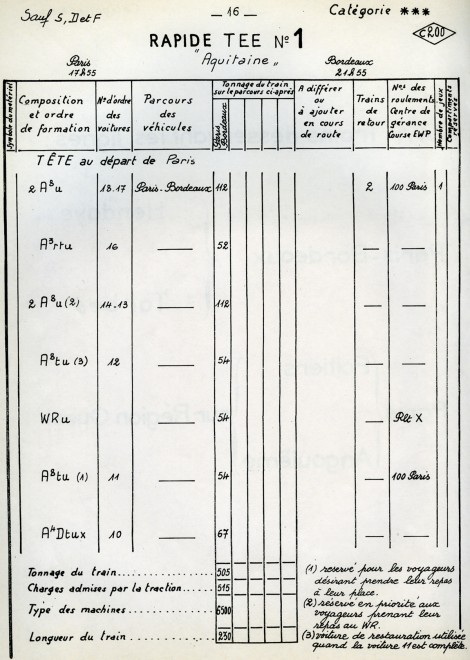 Sauf S, D et F
— 16 —
Catégorie ***
C 200
RAPIDE TEE N° 1
"Aquitaine"
Paris
17h55
Bordeaux
21h55
Symbole du matériel
Composition et ordre de formation
N° d'ordre des voitures
Parcours des véhicules
Tonnage du train sur le parcours ci-après
Paris Bordeaux
A différer ou à ajouter en cours de route
Trains de retour
Nos des roulements Centre de gérance Course EWP
Nombre de jeux
Compartiments réservés
TÊTE au départ de Paris
2 A8u 18.17 Paris-Bordeaux 112 2 100 Paris 1
A3rtu 16 —— 52 — —
2 A8u (2) 14.13 —— 112 — —
A8tu (3) 12 —— 54 — —
WRu —— 54 — Rlt X
A8tu (1) 11 —— 54 — 100 Paris
A4Dtux 10 —— 67 — —
Tonnage du train 505
Charges admises par la traction 515
Type des machines 6500
Longueur du train 230
(1) reservé pour les voyageurs
désirant prendre leur repas
à leur place.
(2) réservé en priorité aux
voyageurs prenant leur
repas au WR.
(3) voiture de restauration utilisée
quand la voiture 11 est complète.